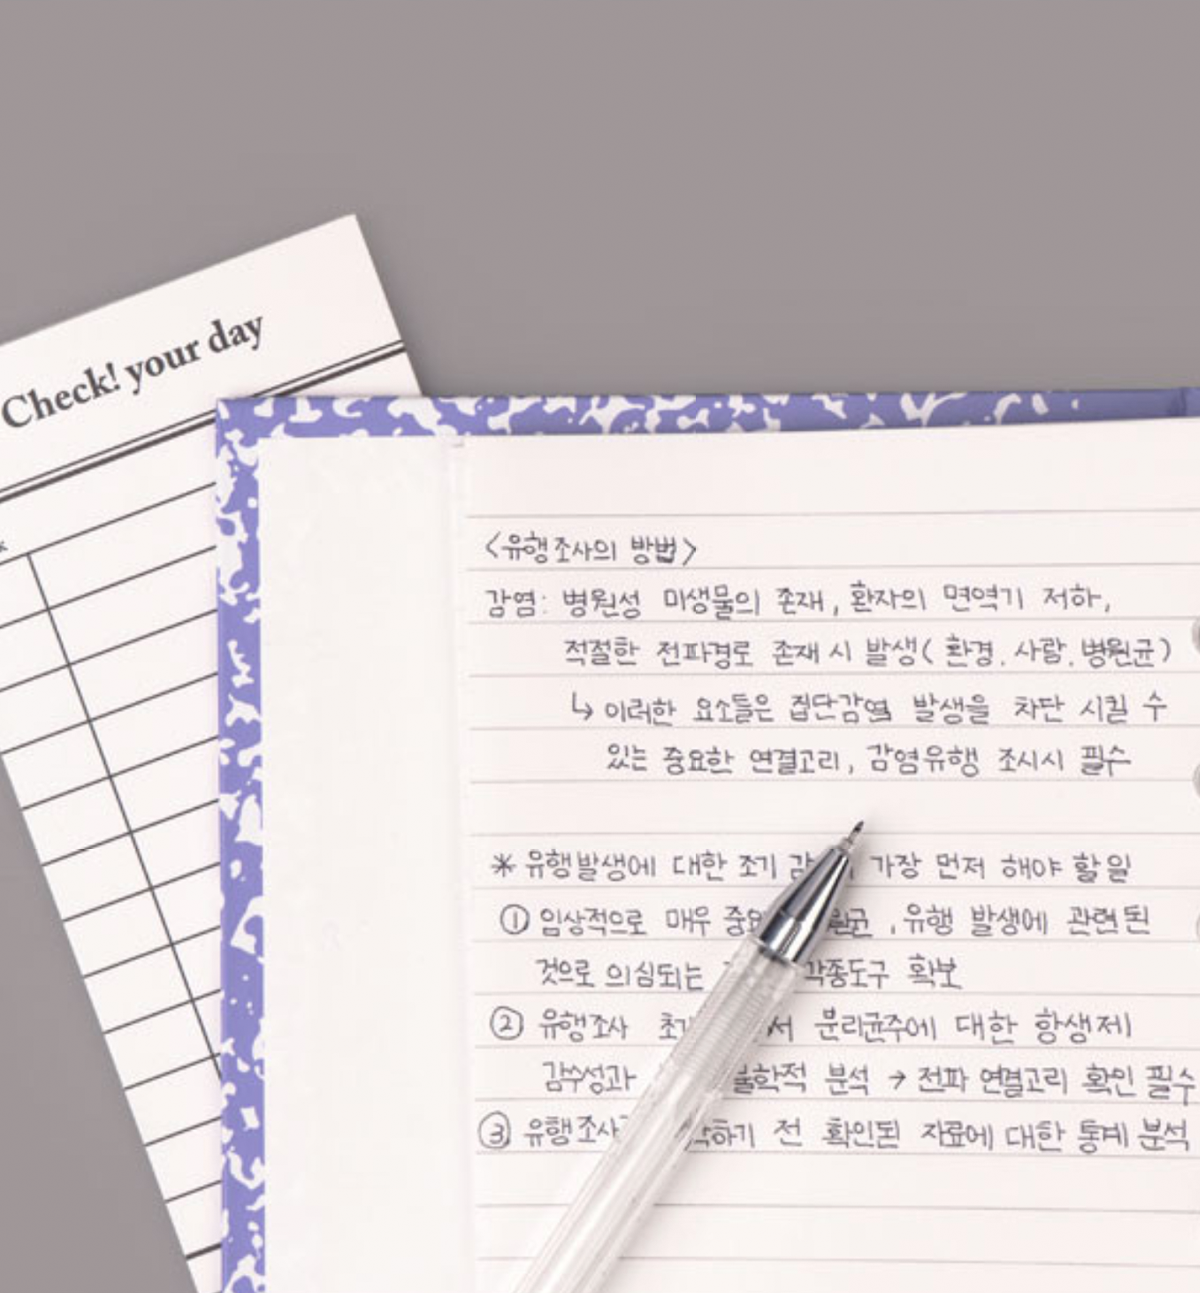 Check! your day
<유행조사의 방법>
감염: 병원성 미생물의 존재, 환자의 면역기 저하,
적절한 전파경로 존재 시 발생( 환경. 사람. 병원균)
↳ 이러한 요소들은 집단감염 발생을 차단 시킬 수
있는 중요한 연결고리, 감염유행 조시시 필수
* 유행발생에 대한 조기 가장 먼저 해야 할 일
① 임상적으로 매우 , 유행 발생에 관련된
것으로 의심되는 각종도구 확보
② 유행조사 분리균주에 대한 항생제
감수성과 분석 → 전파 연결고리 확인 필수
③ 유행조사 전 확인된 자료에 대한 통계 분석